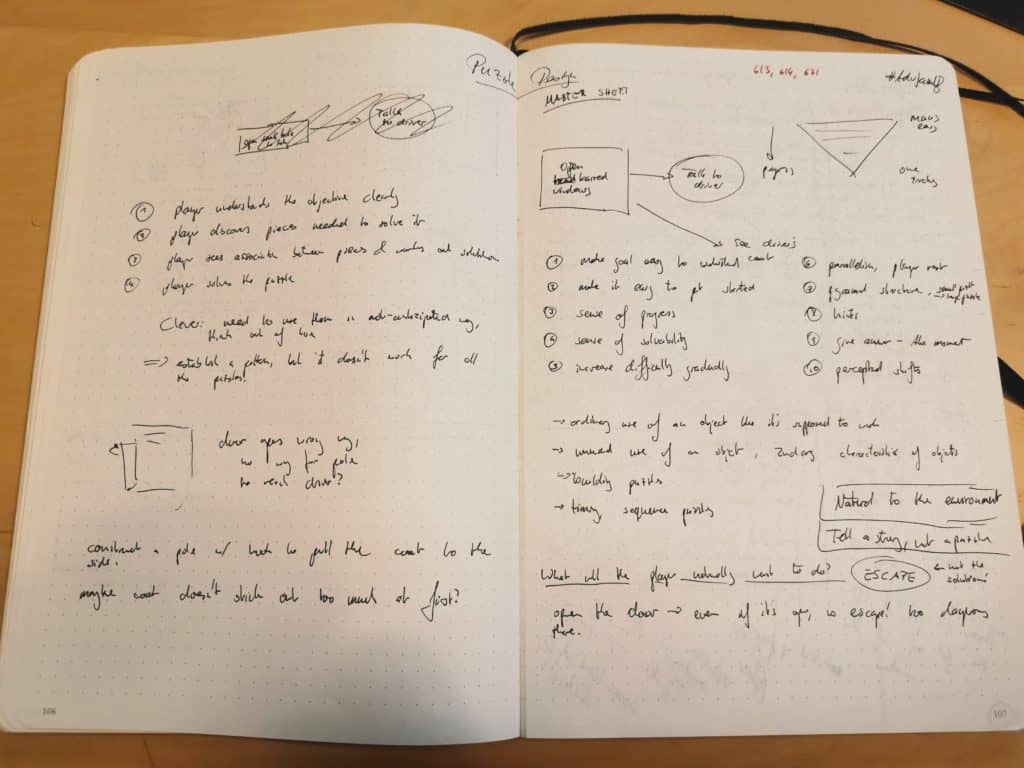 Puzzle
Talk
to driver
① player understands the objective clearly
② player discovers pieces needed to solve it
③ player sees association between pieces & works out solution
④ player solves the puzzle
Clever: need to use them in non-anticipated way,
that's out of box
⇒ establish a pattern, but it doesn't work for all
the puzzles!
door opens wrong way,
no way for pole
to reach driver?
construct a pole w/ hook to pull the coat to the
side.
maybe coat doesn't stick out too much at first?
106
Design
MASTER SHEET
613, 614, 671
open
barred
windows
Talk to
driver
→ see driver's
coat
① make goal easy to understand
② make it easy to get started
③ sense of progress
④ sense of solvability
⑤ increase difficulty gradually
⑥ parallelism, player rest
⑦ pyramid structure
⑧ hints
⑨ give answer - the moment
⑩ perceptual shifts
→ ordinary use of an object like it's supposed to work
→ unusual use of an object, 2ndary characteristics of objects
→ building puzzles
→ timing sequence puzzles
Natural to the environment
Tell a story, not a puzzle
What will the player naturally want to do?
ESCAPE
← not the
solution!
open the door → even if it's open, no escape! too dangerous
there.
107